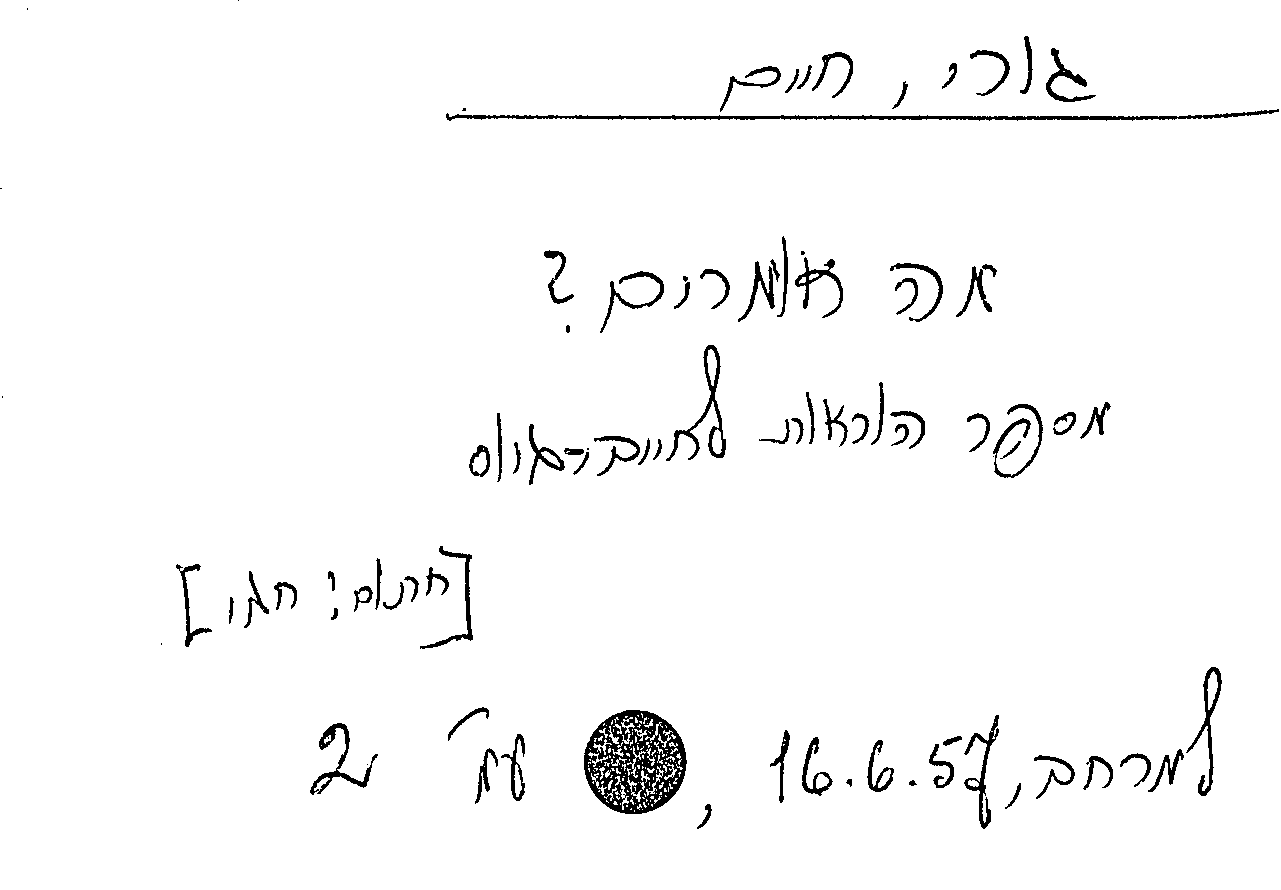 גורי, חיים
מה אומרים?
מספר הוראות לחיים
[חתום: חגי]
למרחב, 16.6.57, עמ' 2